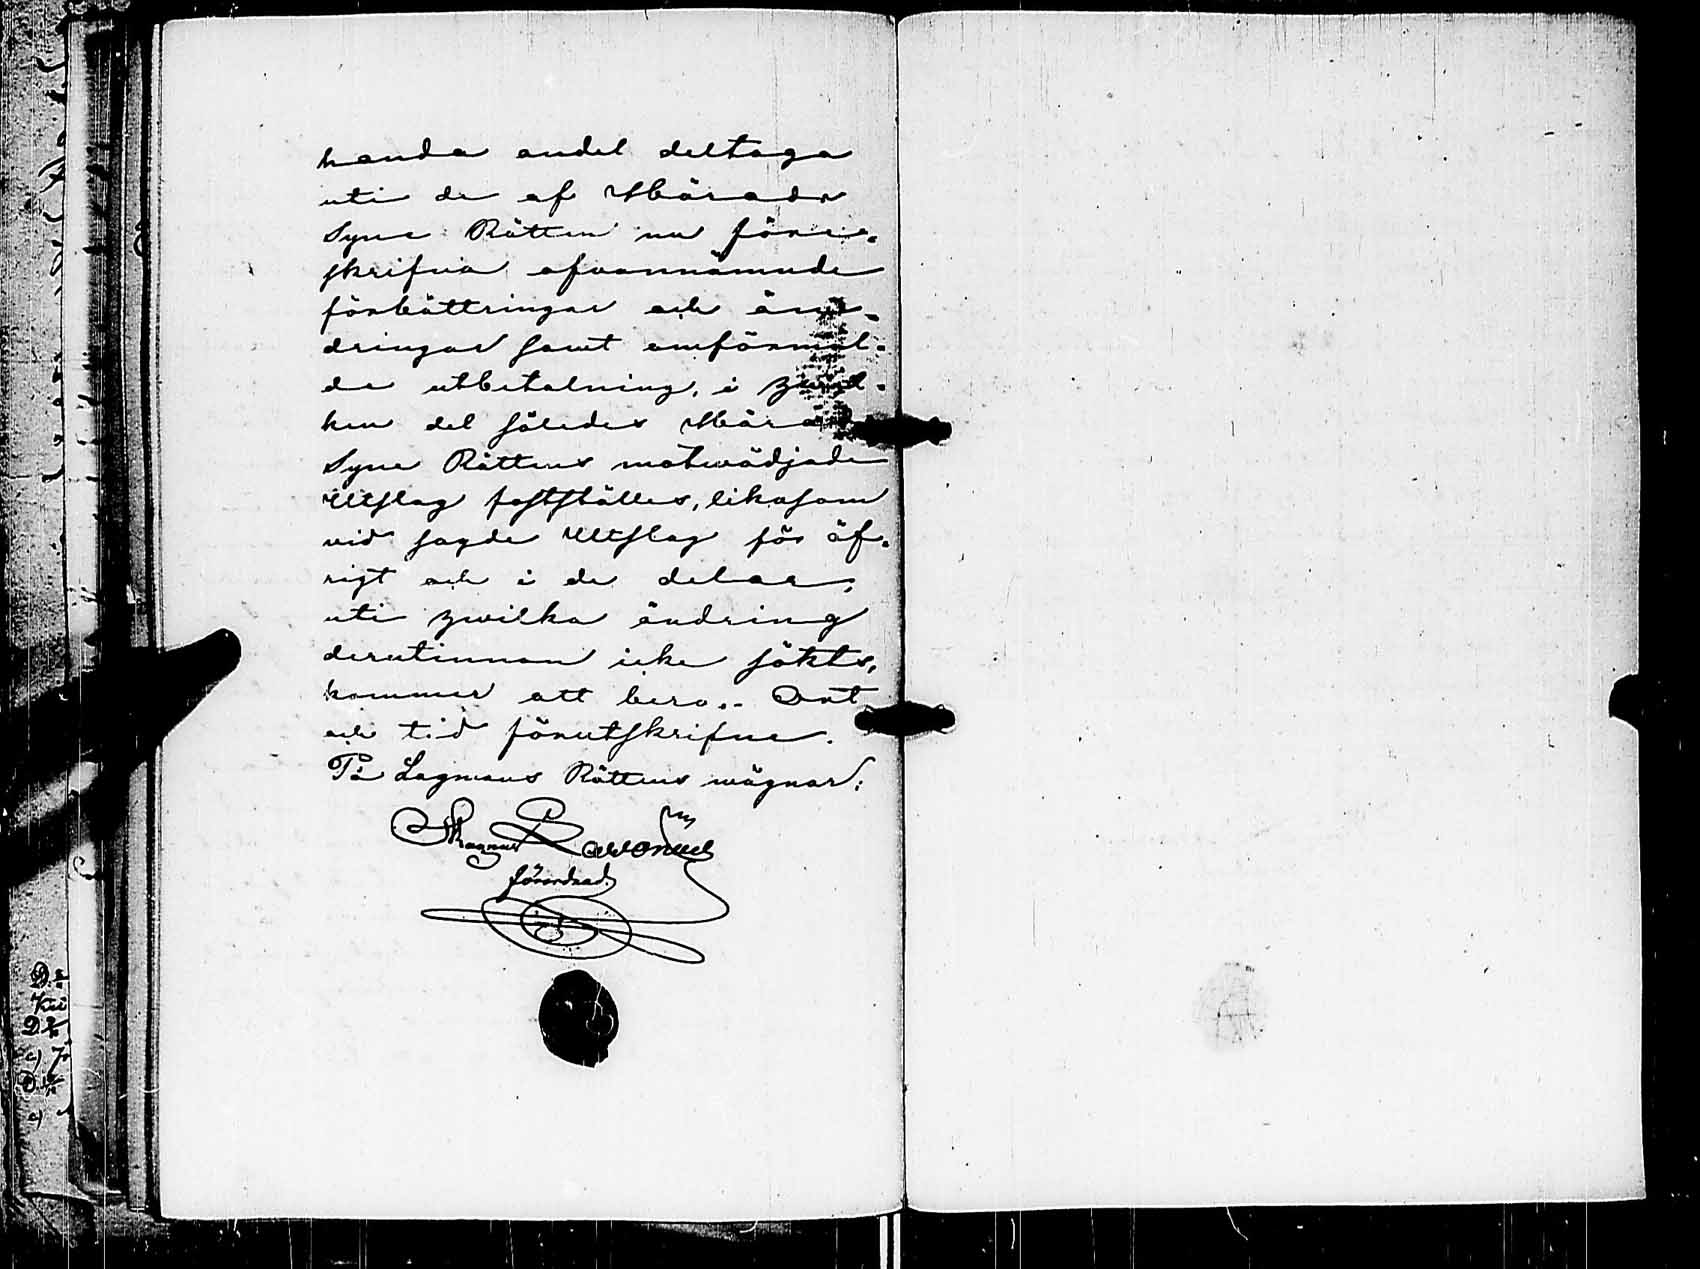 handa andel deltaga
uti de af Härads
Syne Rätten nu före-
skrifna ofvannämnde
förbättringar och än-
dringar samt omförmäl-
de utbetalning, i hwil-
ken del således Härads
Syne Rättens motwädjade
Utslag fastställes, likasom
vid sagde Utslag för öf-
rigt och i de delar,
uti hwilka ändring
derutinnan icke sökts,
kommer att bero. Ort
och tid förutskrifne.
På Lagmans Rättens wägnar:
Magnus
förordnad.